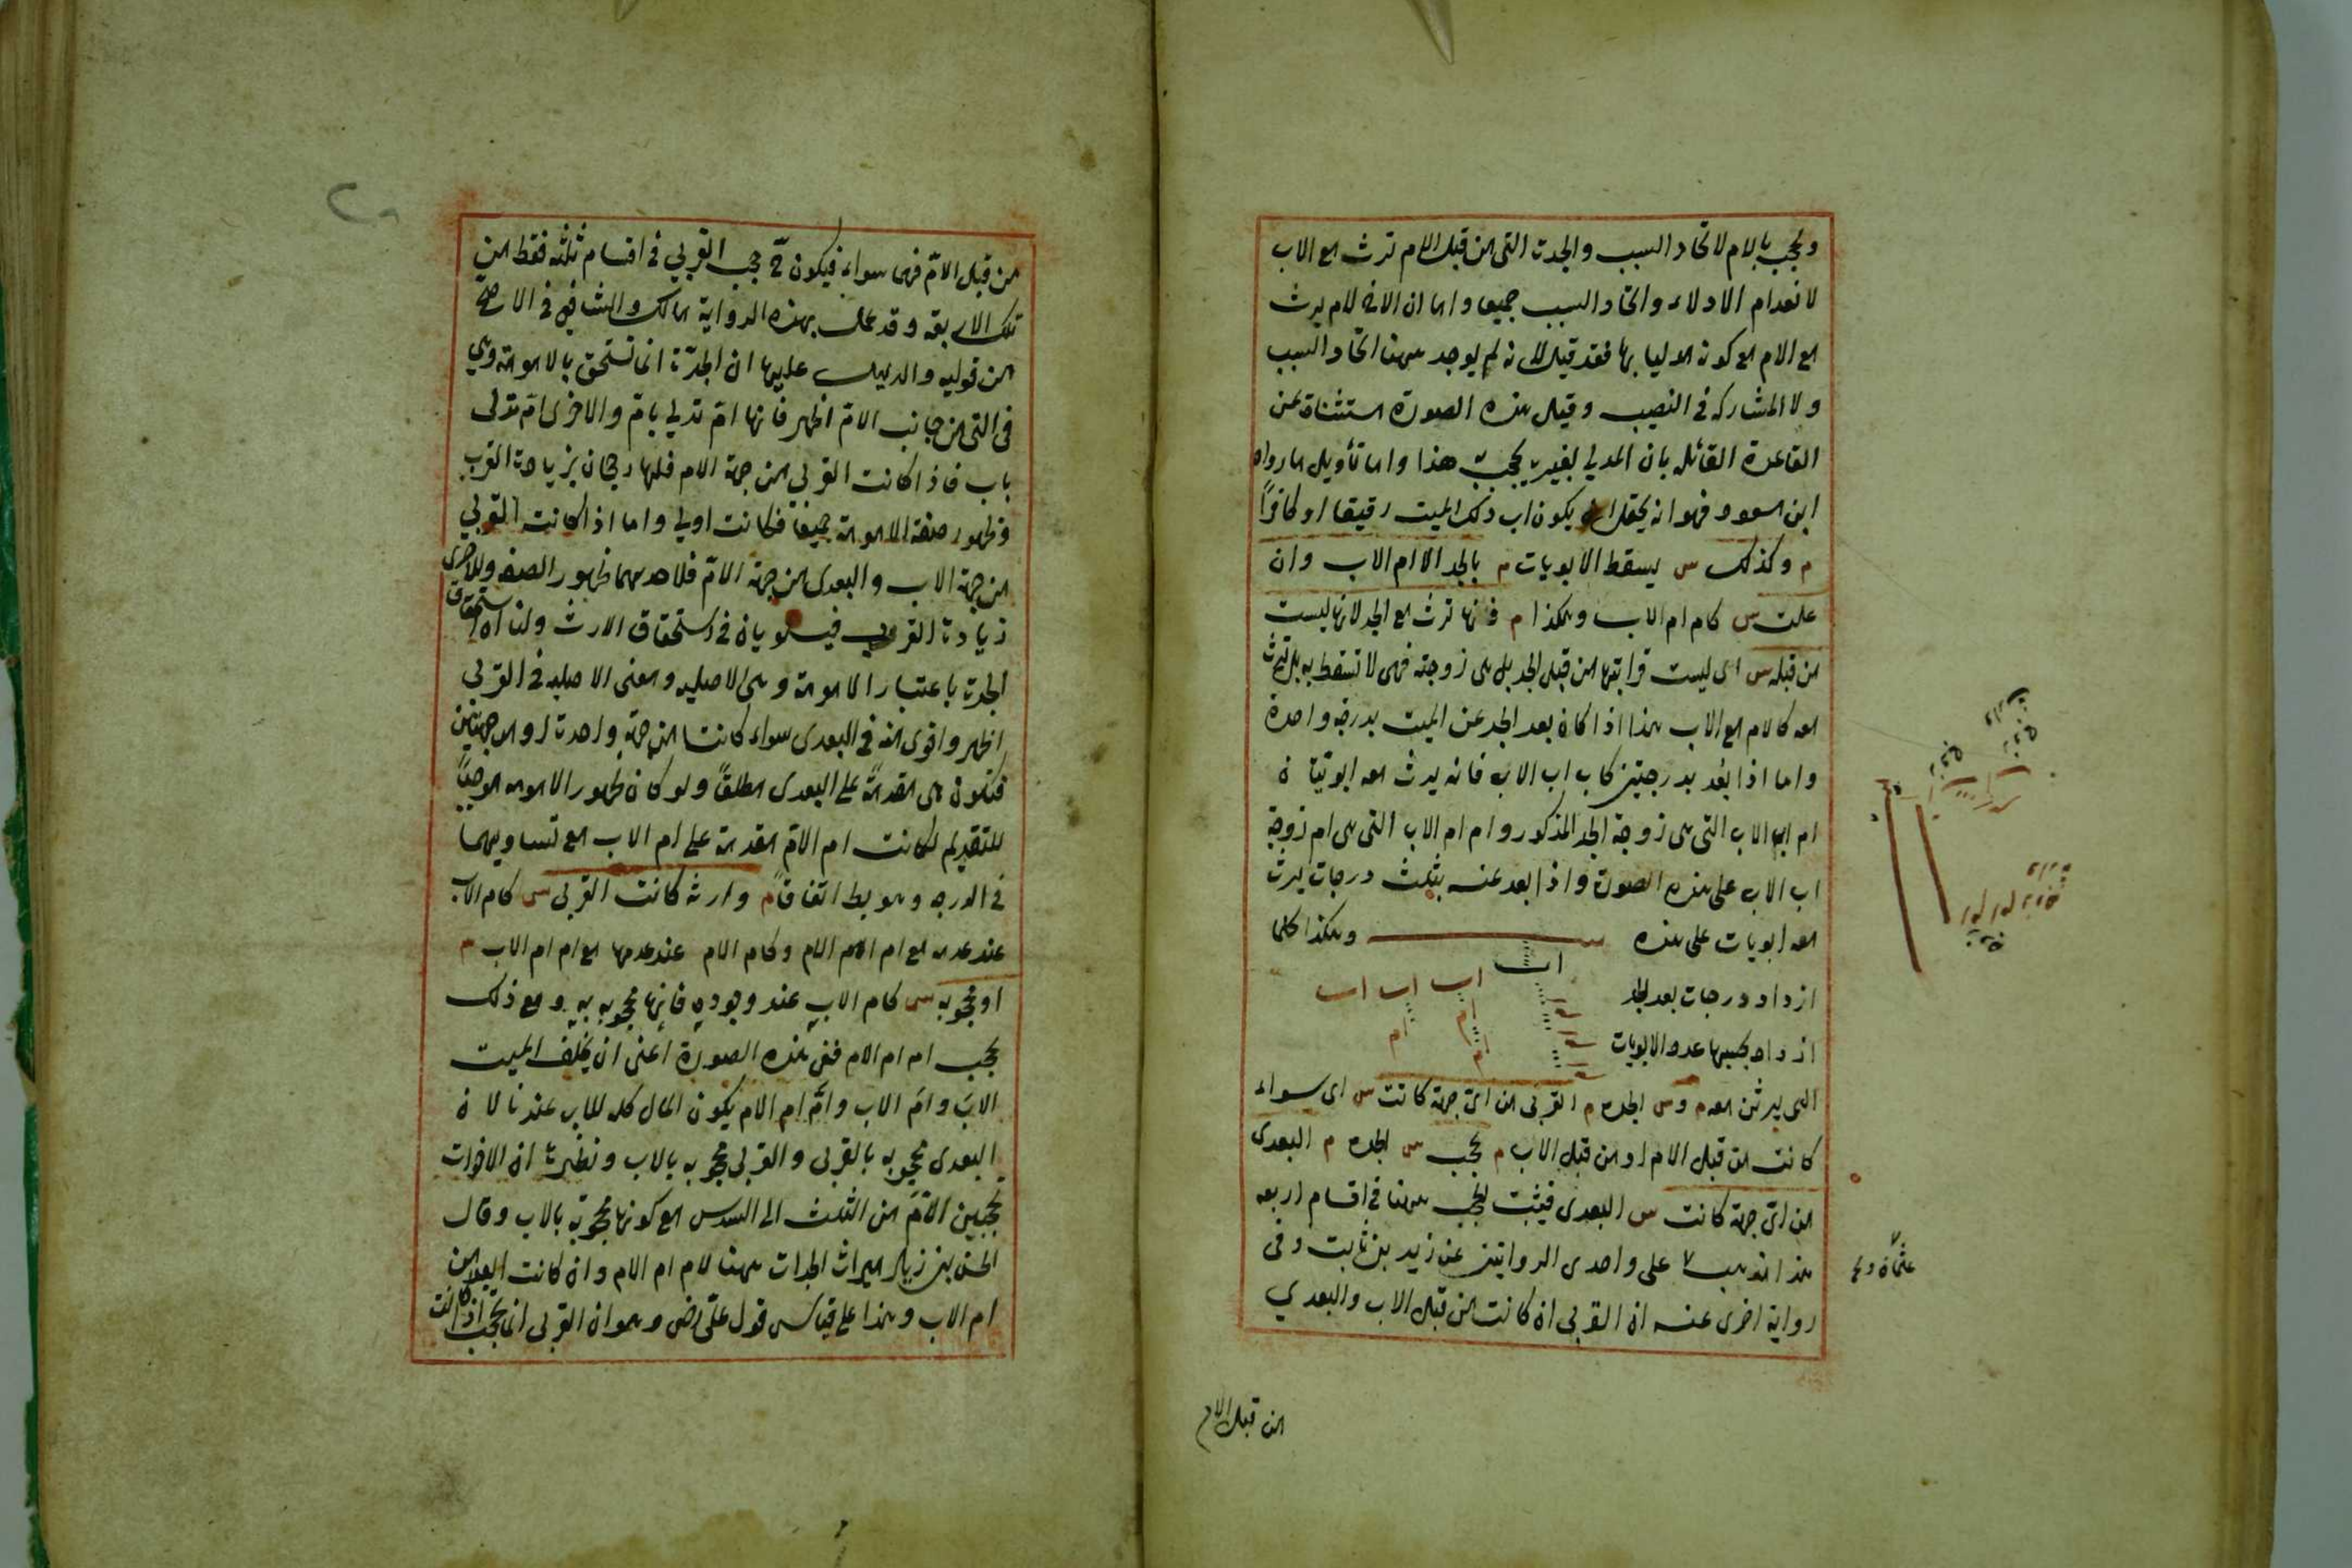 ويحجب بالام لاتحاد السبب والجدة التى من قبل الام ترث مع الاب
لانعدام الادلاء واتحاد السبب جميعا واما ان الاخ لام يرث
مع الام مع كونه مدليا بها فقد قيل لانه لم يوجد ههنا اتحاد السبب
ولا المشاركه فى النصيب وقيل هذه الصورة مستثناة عن
القاعدة القائله بان المدلى بغير يحجب هذا واما تأويل ما رواه
ابن مسعود فهو انه يحتمل ان يكون اب ذلك الميت رقيقا او كافرًا
م وكذلك س يسقط الابويات م بالجد الا ام الاب وان
علت س كام ام الاب وهكذا م فانها ترث مع الجد لانها ليست
من قبله س اى ليست قرابتها من قبل الجد بل هى زوجته فهى لا تسقط به بل ترث
معه كالام مع الاب هذا اذا كان بعد الجد عن الميت بدرجه واحدة
واما اذا بعد بدرجتين كاب اب الاب فانه يرث معه ابويتان
ام اب الاب التى هى زوجة الجد المذكور وام ام الاب التى هى ام زوجة
اب الاب على هذه الصورة واذا بعد عنه بثلث درجات يرث
معه ابويات على هذه وهكذا كلما
ازداد درجات بعد الجد
اب
اب اب اب
ام ام
ازداد بحسبها عدد الابويات
ام
التى يرثن معه م وس الجده م القربى من اى جهة كانت س اى سواء
كانت من قبل الام او من قبل الاب م تحجب س الجده م البعدى
من اى جهة كانت س البعدى فيثبت الحجب ههنا فى اقسام اربعه
هذا مذهب على واحدى الروايتين عن زيد بن ثابت وفى
رواية اخرى عنه ان القربى ان كانت من قبل الاب والبعدي
من قبل الام
من قبل الامّ فهما سواء فيكون ح حجب القربى فى اقسام ثلثه فقط من
تلك الاربعة وقد عمل بهذه الرواية مالك والشافعى فى الاصح
من قوليه والدليل عليها ان الجدّة انما تستحق بالامومة وهى
فى التى من جانب الامّ اظهر فانها امّ تدلي بامّ والاخرى امّ تدلى
باب فاذا كانت القربى من جهة الام فلها رجحان بزيادة القرب
وظهور صفة الامومة جميعا فكانت اولى واما اذا كانت القربى
من جهة الاب والبعدى من جهة الامّ فلاحدهما ظهور الصفه وللاخرى
زيادة القرب فيستويان فى استحقاق الارث ولنا ان استحقاق
الجدة باعتبار الامومة وهى الاصليه ومعنى الاصليه فى القربى
اظهر واقوى منه فى البعدى سواء كانتا من جهة واحدة او من جهتين
فتكون هى مقدمةً على البعدى مطلقًا ولو كان ظهور الامومه موجبًا
للتقديم لكانت ام الامّ مقدمة على ام الاب مع تساويهما
فى الدرجه وهو بط اتفاقا م وارثه كانت القربى س كام الاب
عند عدمه مع ام الام الام وكام الام عند عدمها مع ام ام الاب م
او محجوبه س كام الاب عند وجوده فانها محجوبه به ومع ذلك
تحجب ام ام الام ففى هذه الصورة اعنى ان يخلف الميت
الابَ وامّ الاب وامّ ام الام يكون المال كله للاب عندنا لان
البعدى محجوبه بالقربى والقربى محجوبه بالاب ونظيره ان الاخوات
تحجبين الامّ من الثلث الى السدس مع كونها محجوبة بالاب وقال
الحسن بن زياد ميراث الجدات ههنا لام ام الام وان كانت ابعد من
ام الاب وهذا على قياس قول على رض وهو ان القربى انما تحجب اذا كانت